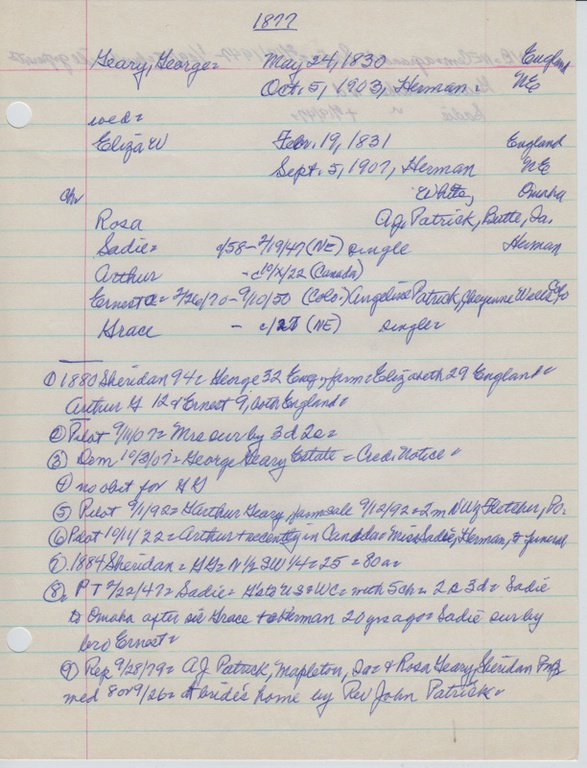 1877
Geary, George= May 24, 1830 England
Oct. 5, 1903, Herman. NE
wed=
Eliza W Febr. 19, 1831 England
Sept. 5, 1907, Herman NE
White, Omaha
Ch=
Rosa A.J. Patrick, Butte, Ia.
Sadie= c/58 - 2/19/47 (NE) single Herman
Arthur - d 10/x/22 (Canada)
Ernest G= 2/26/70 - 9/10/50 (Colo.) Angeline Patrick, Cheyenne Wells Colo
Grace - c/27 (NE) single
① 1880 Sheridan 94= George 32 Eng, farm= Elizabeth 29 England=
Arthur G 12 & Ernest 9, both England=
② Pilot 9/11/07= Mrs sur by 3d 2s=
③ Dem 10/3/07= George Geary Estate= Cred Notice=
④ no obit for GG
⑤ Pilot 9/1/92= G Arthur Geary, farm sale 9/12/92= 2m NW of Fletcher, PO.
⑥ Pilot 10/11/22= Arthur + recently in Canada= Miss Sadie, Herman, to funeral
⑦ 1884 Sheridan= GG= N½ SW¼= 25= 80a=
⑧ PT 2/22/47= Sadie= G's to US= WC= with 5ch= 2s 3d= Sadie
to Omaha after sis Grace + @ Herman 20 yrs ago= Sadie sur by
bro Ernest=
⑨ Rep 9/28/79= AJ Patrick, Mapleton, Ia= & Rosa Geary, Sheridan Pct
wed 8 or 9/26= at bride's home by Rev John Patrick=